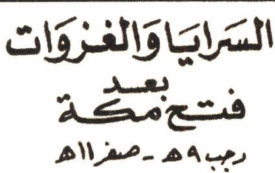 السَرايَا وَالغَزوَات
بعد
فتح مكة
رجب ٩ هـ - صفر ١١ هـ